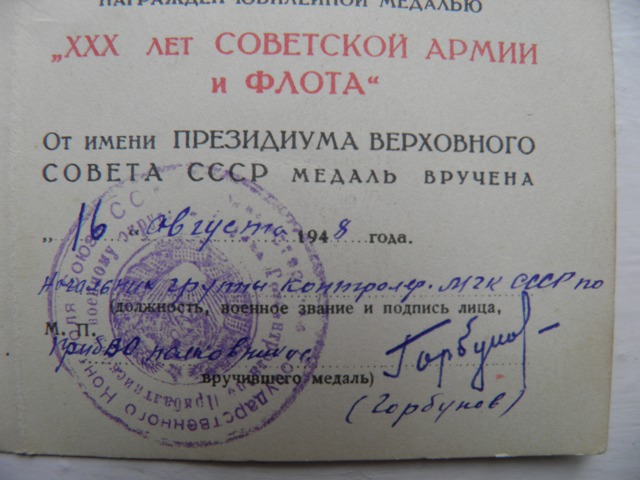 НАГРАЖДЕН ЮБИЛЕЙНОЙ МЕДАЛЬЮ
„XXX ЛЕТ СОВЕТСКОЙ АРМИИ
И ФЛОТА“
От имени ПРЕЗИДИУМА ВЕРХОВНОГО
СОВЕТА СССР МЕДАЛЬ ВРУЧЕНА
„16“ августа 1948 года.
Начальник группы контролер. МГК СССР по
(должность, военное звание и подпись лица,
М. П.
ПрибВО полковник Горбунов
вручившего медаль)
(Горбунов)